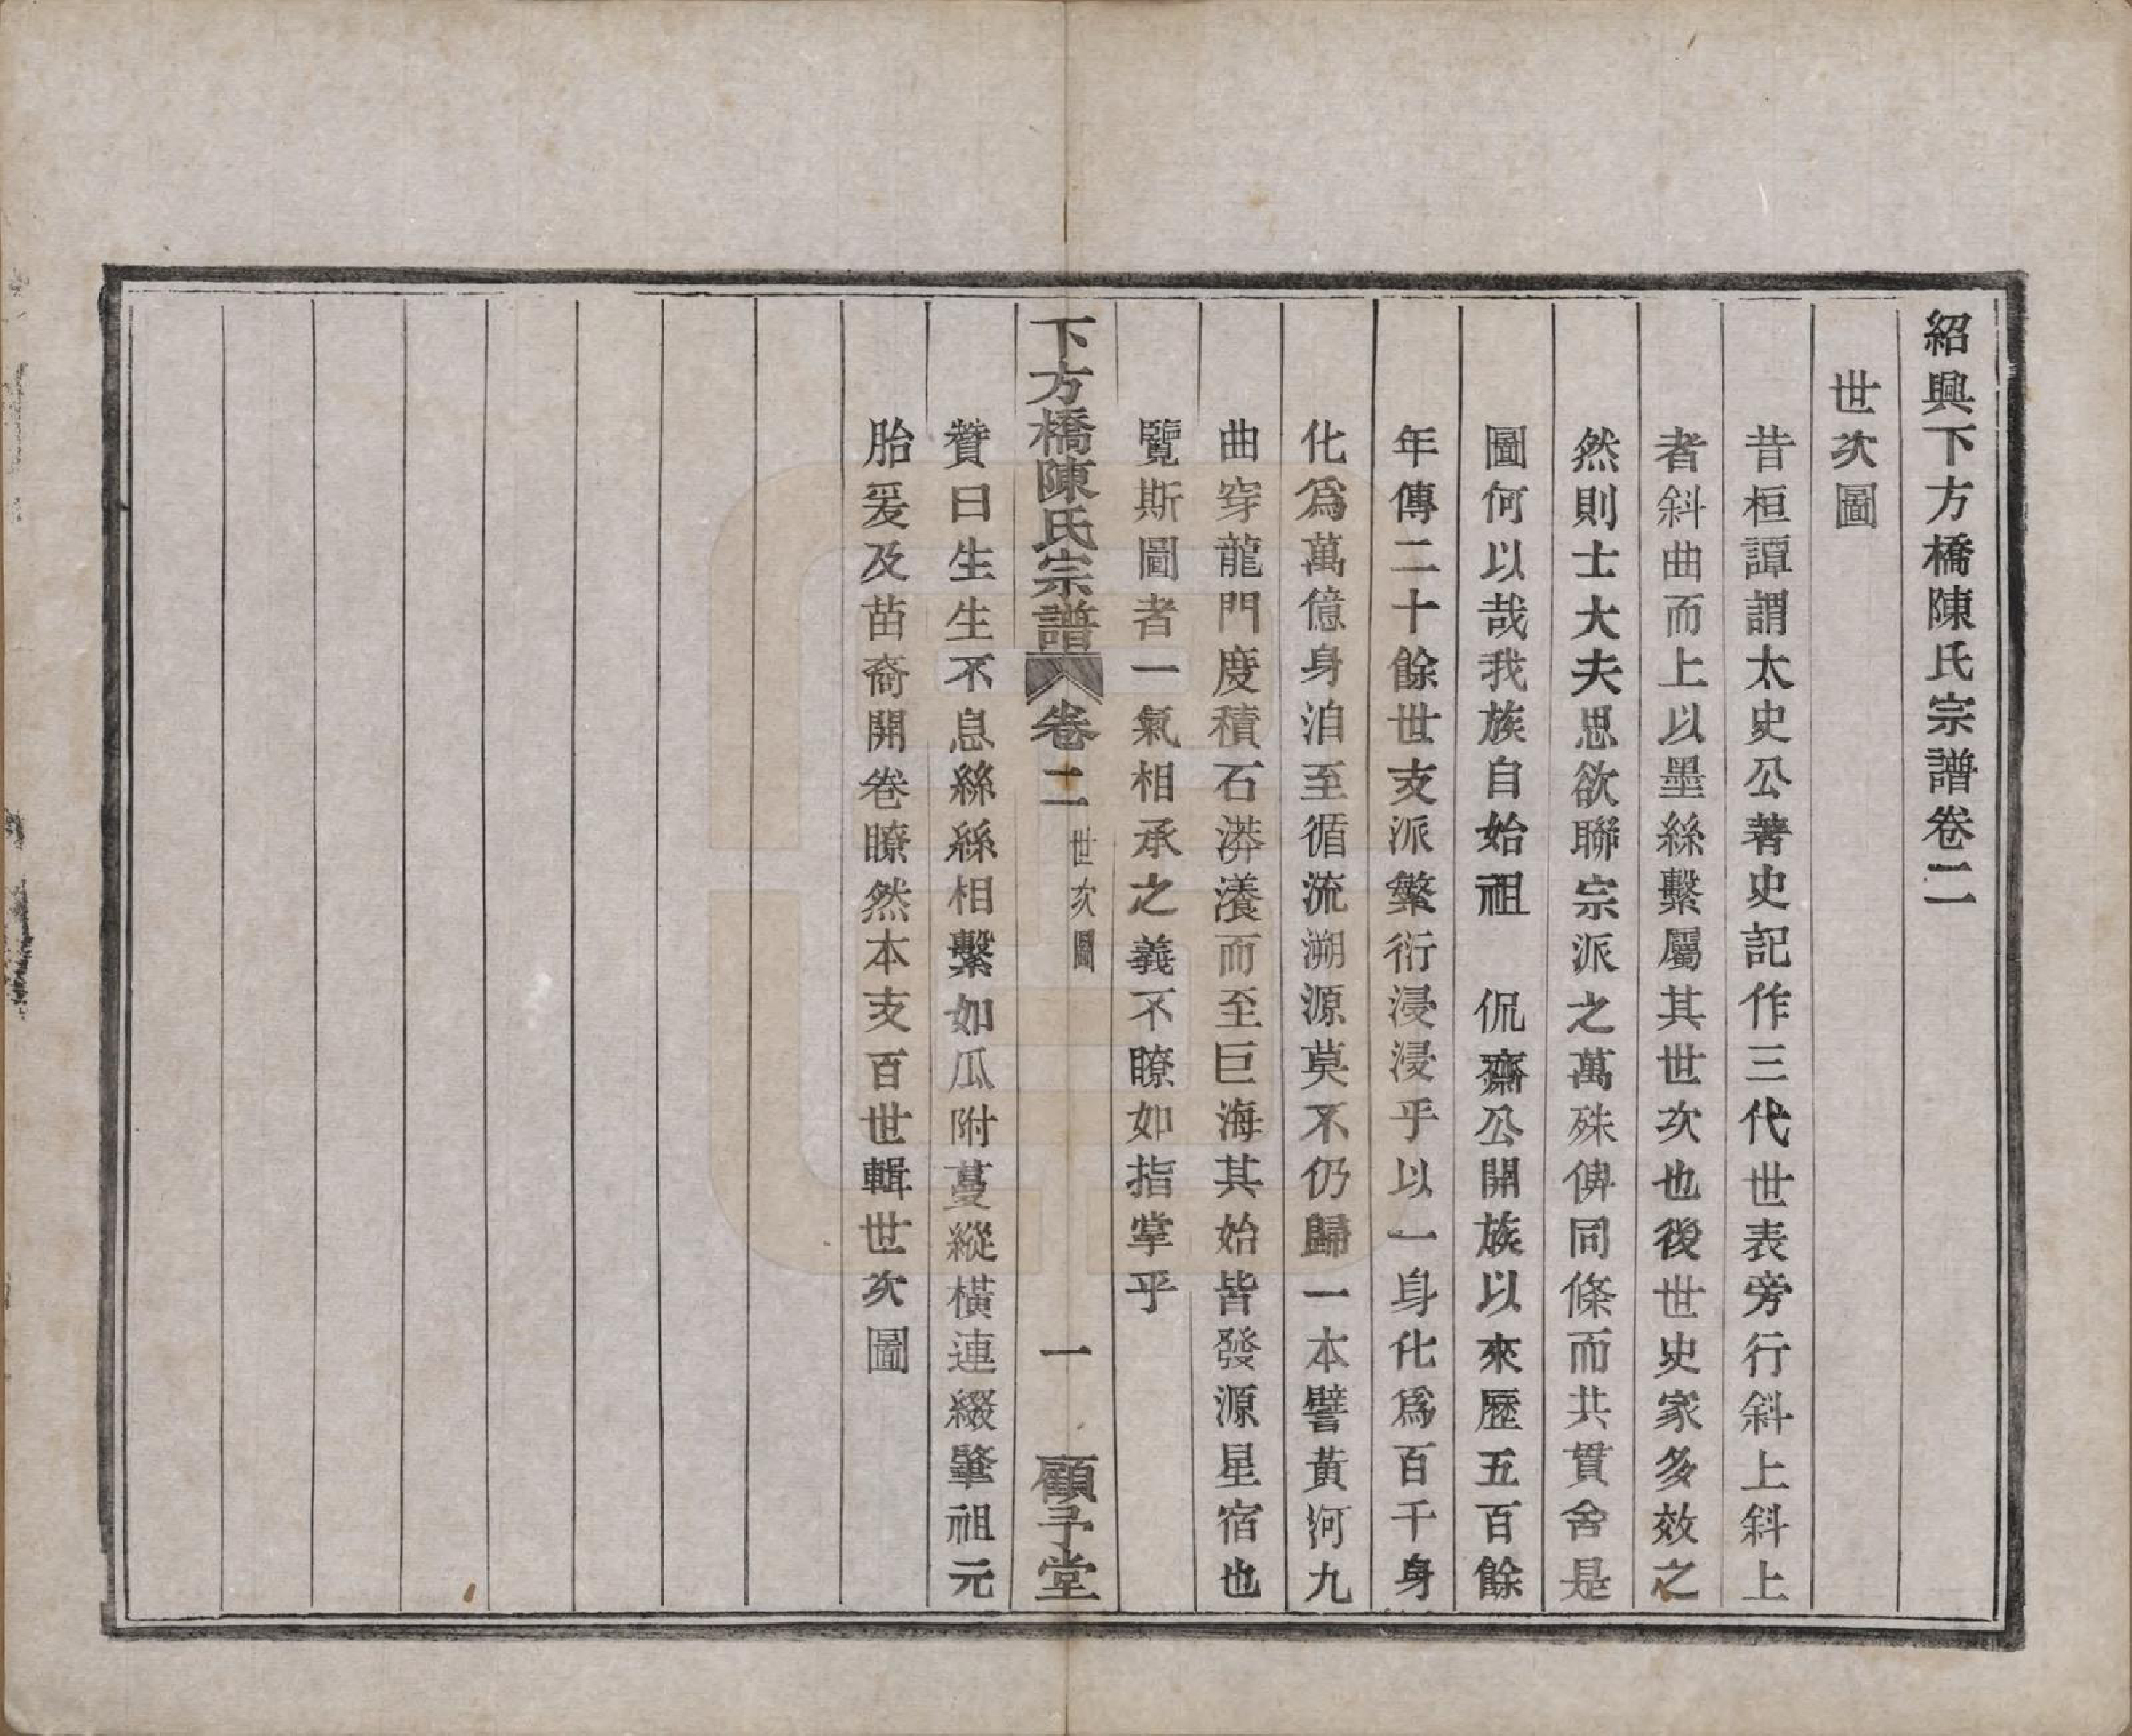 紹興下方橋陳氏宗譜卷二
世次圖
昔桓譚謂太史公著史記作三代世表旁行斜上斜上
者斜曲而上以墨絲繫屬其世次也後世史家多效之
然則士大夫思欲聯宗派之萬殊俾同條而共貫舍是
圖何以哉我族自始祖　侃齋公開族以來歷五百餘
年傳二十餘世支派繁衍浸浸乎以一身化爲百千身
化爲萬億身洎至循流溯源莫不仍歸一本譬黃河九
曲穿龍門度積石漭瀁而至巨海其始皆發源星宿也
覽斯圖者一氣相承之義不瞭如指掌乎
下方橋陳氏宗譜 卷二 世次圖 一 顧予堂
贊曰生生不息絲絲相繫如瓜附蔓縱橫連綴肇祖元
胎爰及苗裔開卷瞭然本支百世輯世次圖